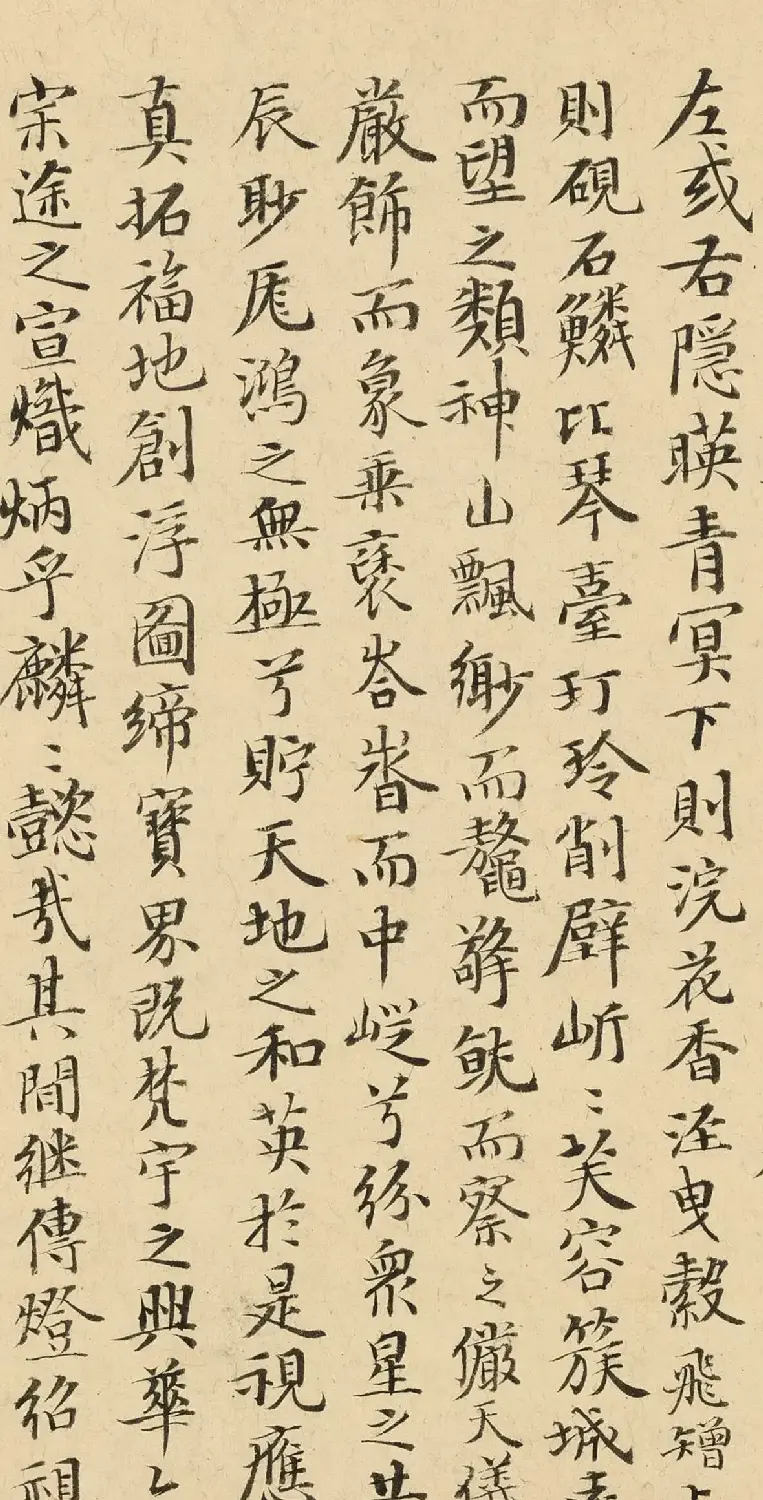 左或右隱暎青冥下則浣花香涇曳縠飛矰
則硯石鱗比琴臺玎玲削壁岓〻芙容簇城
而望之類神山飄緲而鼇擎䏻而察之儼天儀
嚴飾而象乘褒峉㟙而中㟅兮紛衆星之共
辰眇厖鴻之無極兮貯天地之和英於是視應
真拓福地創浮圖締寶界既梵宇之興華
宗途之宣熾炳乎麟〻懿哉其間継傳燈紹祖